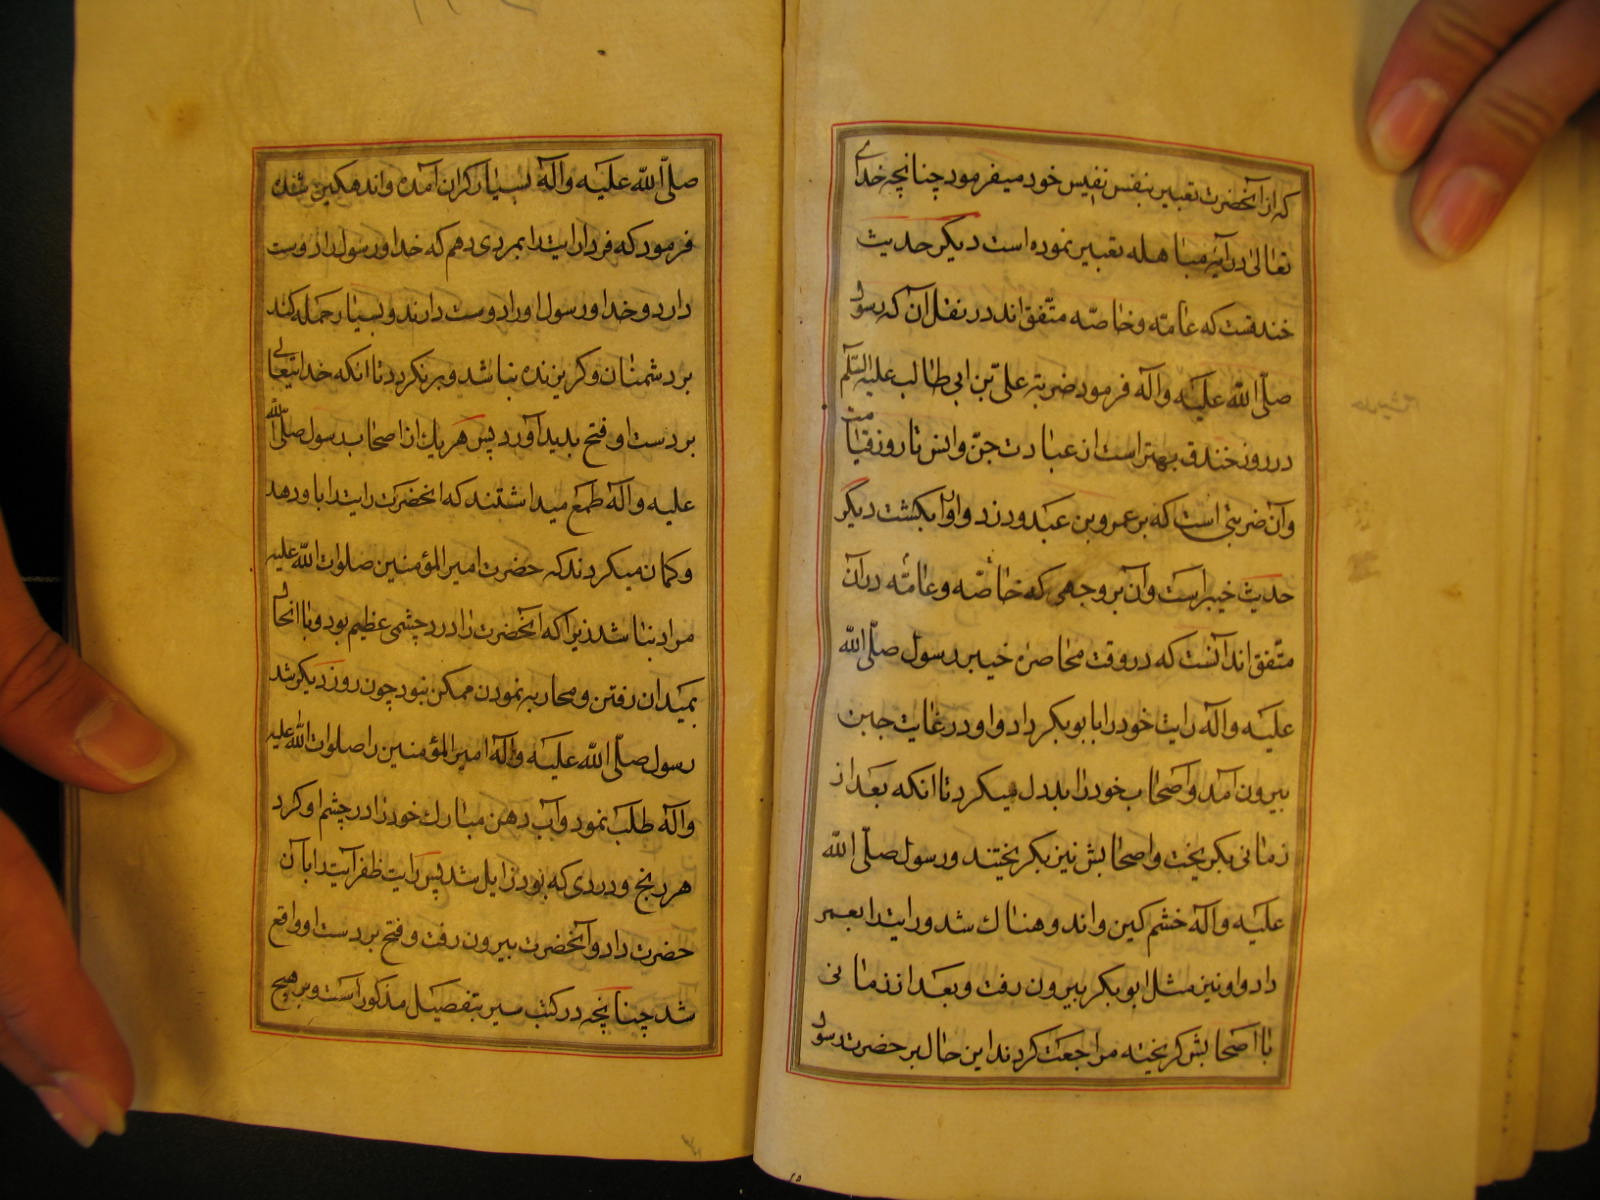 که از آنحضرت تعبیر بنفس نفیس خود میفرمود چنانچه خدای
تعالی در آیه مباهله تعبیر نموده است دیکر حدیث
خندقست که عامّه و خاصّه متّفق اند در نقل آن که رسول
صلّی اللّه علیه وآله فرمود ضربة علی بن ابی طالب علیه السّلم
در روز خندق بهتر است از عبادت جنّ و انس تا روز قیامت
و آن ضربتی است که بر عمرو بن عبدود زد و او را بکشت دیگر
حدیث خیبر است و آن بر وجهی که خاصّه و عامّه در آن
متّفق اند آنست که در وقت محاصره خیبر رسول صلّی اللّه
علیه وآله رایت خود را بابوبکر داد و او در غایت جبن
بیرون آمد و اصحاب خود را بددل میکرد تا انکه بعد از
زمانی بکریخت و اصحابش نیز بکریختند و رسول صلّی اللّه
علیه وآله خشم کین و اندوهناک شد و رایت را بعمر
داد و او نیز مثل ابوبکر بیرون رفت و بعد از زمانی
با اصحابش کریخته مراجعت کردند این حال بر حضرت رسول
صلّی اللّه علیه وآله بسیار کران آمده و اندهکین شده
فرمود که فردا رایت را بمردی دهم که خدا و رسول را دوست
دارد و خدا و رسول او را دوست دارند و بسیار حمله کند
بر دشمنان و کریزنده نباشد و برنکردد تا انکه خدایتعالی
بر دست او فتح بدید آورد پس هر یک از اصحاب رسول صلّی اللّه
علیه وآله طمع میداشتند که انحضرت رایت را باو دهد
و کمان میکردند که حضرت امیر المؤمنین صلوات اللّه علیه
مراد نباشد زیرا که آنحضرت را درد چشمی عظیم بود و با انحال
بمیدان رفتن و محاربه نمودن ممکن نبود چون روز دیکر شد
رسول صلّی اللّه علیه وآله امیر المؤمنین را صلوات اللّه علیه
وآله طلب نمود و آب دهن مبارک خود را در چشم او کرد
هر رنج و دردی که بود زایل شد پس رایت ظفر آیت را بآن
حضرت داد و آنحضرت بیرون رفت و فتح بر دست او واقع
شد چنانچه در کتب سیر بتفصیل مذکور است و بر هیچ
۲۵